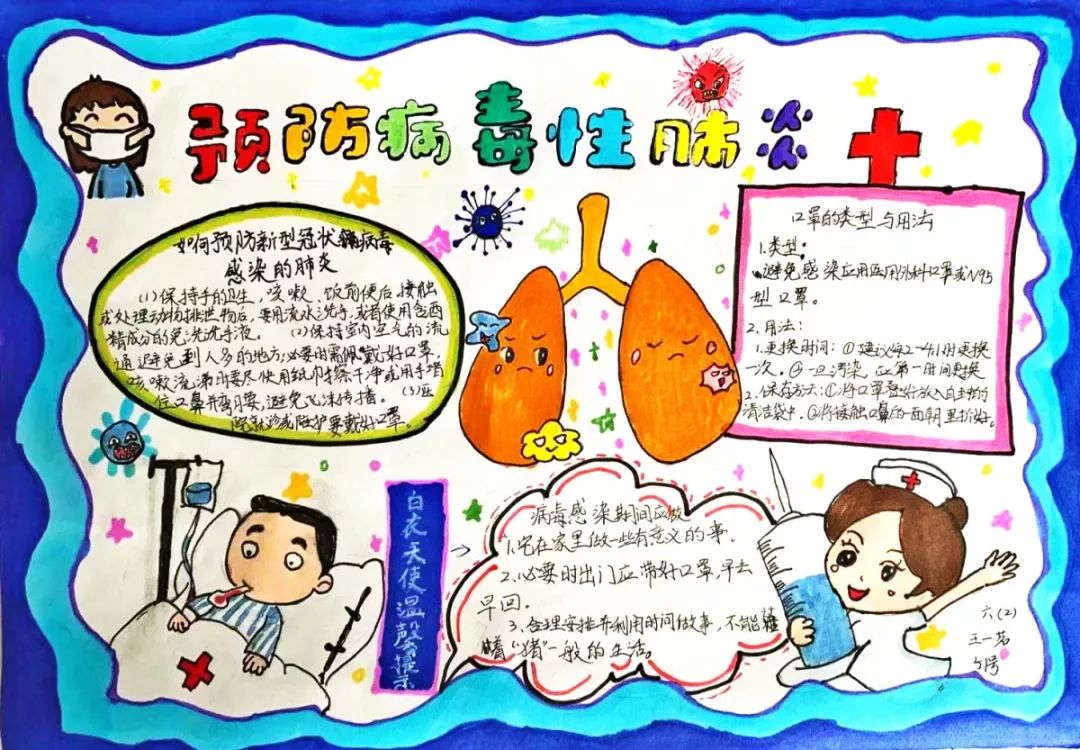 预防病毒性肺炎
如何预防新型冠状病毒
感染的肺炎
(1)保持手的卫生,咳嗽、饭前便后、接触
或处理动物排泄物后,要用流水洗手,或者使用含酒
精成分的免洗洗手液。 (2)保持室内空气的流
通避免到人多的地方,必要时需佩戴好口罩
咳嗽流涕时要尽使用纸巾擦干净或用手
位口鼻并弯月要,避免飞沫传播。 (3)
院就诊或陪护要戴好口罩。
口罩的类型与用法
1.类型:
避免感染应用医用外科口罩或N95
型口罩。
2.用法:
1.更换时间:①建议每2-4小时更换
一次。②一旦污染,应第一时间更换
2.保存方法:①将口罩叠好放入自封的
清洁袋中。②将接触口鼻的一面朝里折好。
白衣天使温馨提示
病毒感染期间应做
1.宅在家里做一些有意义的事。
2.必要时出门应带好口罩,早去
早回。
3、合理安排并利用时间做事,不能
"猪"一般的生活。
六(2)
王一茗
号